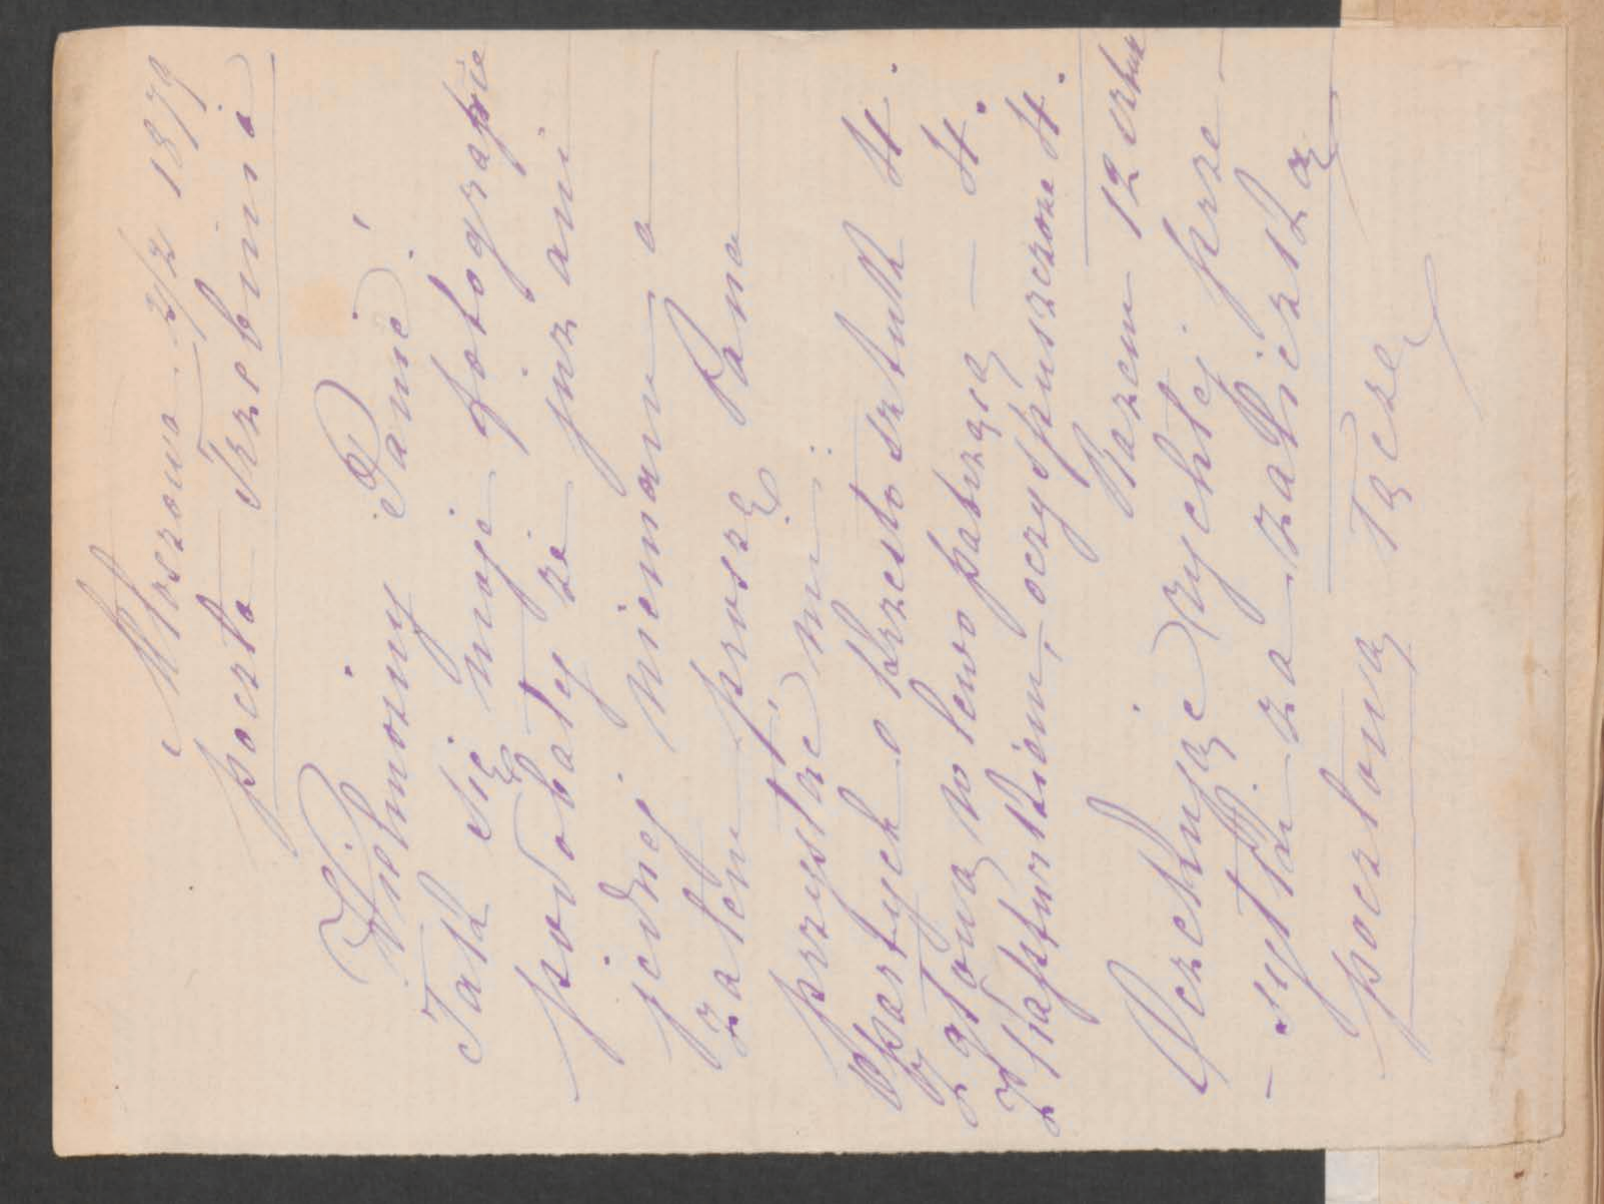 Młoszowa 2/2 1879
poczta Trzebinia
Wielmożny Panie!
Tak się moje fotografie
podobały że już ani
jednej niemam a
zatem proszę Pana
przysłać mi:
opartych o krzesło sztuk 4.
z głową w lewo patrzącą — 4.
z Kapturskiem, oczy spuszczone 4.
Razem 12 sztuk
Oczekując rychłej prze-
-syłki za zaliczką
pocztową